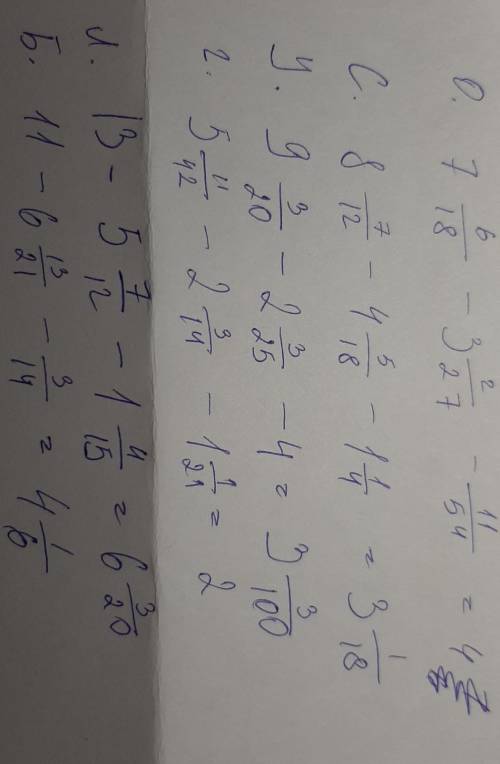 О. 7 6/18 - 3 2/27 - 11/54 = 4
С. 8 7/12 - 4 5/18 - 1 1/4 = 3 1/18
У. 9 3/20 - 2 3/25 - 4 = 3 3/100
г. 5 11/42 - 2 3/14 - 1 1/21 = 2
13 - 5 7/12 - 1 4/15 = 6 3/20
Б. 11 - 6 13/21 - 3/14 = 4 1/6